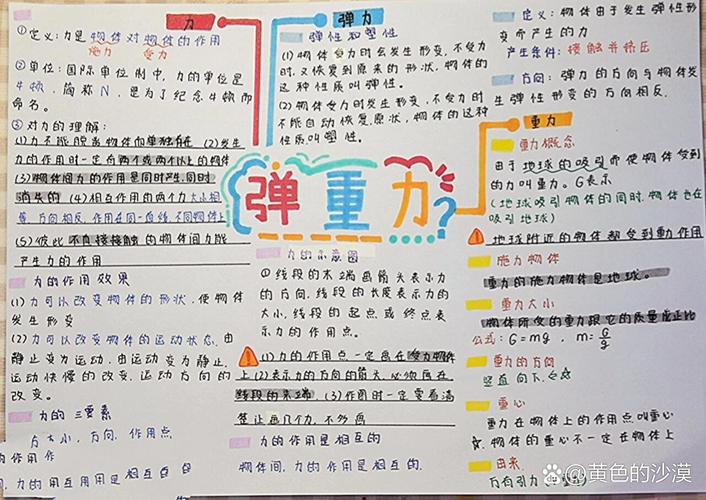 力
①定义:力是物体对物体的作用
施力 受力
②单位:国际单位制中,力的单位是
牛顿,简称N,是为了纪念牛顿而
命名。
③对力的理解:
(1)力不能脱离物体而单独存在 (2)发生
力的作用时一定有两个或两个以上的物体
(3)物体间力的作用是同时产生,同时
消失的 (4)相互作用的两个力大小相
等,方向相反,作用在同一直线,不同物体上
(5)彼此不直接接触的物体间力能
产生力的作用
力的作用效果
(1)力可以改变物体的形状,使物体
发生形变
(2)力可以改变物体的运动状态,由
静止变为运动,由运动变为静止,
运动快慢的改变,运动方向的
改变。
力的三要素
力大小,方向,作用点
的作用作
力的用互用用是相互
弹力
弹性和塑性
(1)物体受力时会发生形变,不受力
时,又恢复到原来的形状,物体的
这种性质叫弹性。
(2)物体受力时发生形变,不受力时
不能自动恢复原状,物体的这种
性质叫塑性。
弹重力?
力的示意图
①线段的末端画箭头表示力
的方向,线段的长度表示力的
大小,线段的起点或终点表
示力的作用点。
(1)力的作用点一定画在受力物体
上 (2)表示力的方向的箭头,必须画在
线段的末端 (3)作图时一定要看清
楚让画几个力,不多画
力的作用是相互的
物体间,力的作用是相互的.
定义:物体由于发生弹性形
变而产生的力
产生条件:接触并挤压
方向:弹力的方向与物体发
生弹性形变的方向相反.
重力
重力概念
由于地球的吸引而使物体受到
的力叫重力。G表示
(地球吸引物体的同时,物体也在
吸引地球)
地球附近的物体都受到重力作用
施力物体
重力的施力物体是地球。
重力大小
物体所受的重力跟它的质量成正比
公式:G=mg, m=G/g
重力的方向
竖直向下
重心
重力在物体上的作用点叫重心
物体的重心不一定在物体上
由来
万有引力
黄色的沙漠